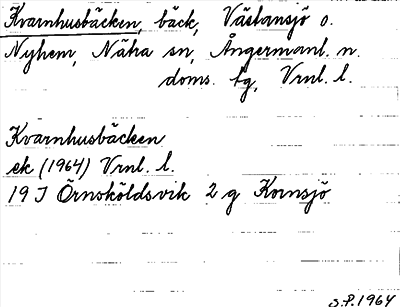 Kvarnhusbäcken, bäck, Västansjö o.
Nyhem, Näha sn, Ångermanl. n.
doms. tg, Vrnl. l.
Kvarnhusbäcken
ek (1964) Vrnl. l.
19 J Örnsköldsvik 2 g Kornsjö
S.P. 1964